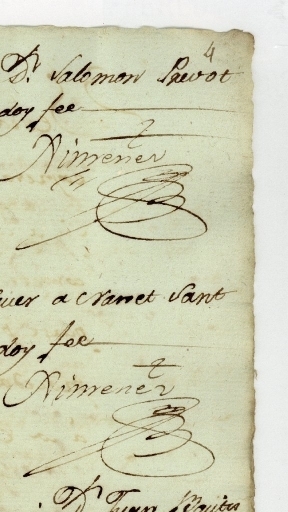 4
Dⁿ Salomon Prevot
doy fee
Ximenez
a Cranet Sant
doy fee
Ximenez
Dⁿ Juan